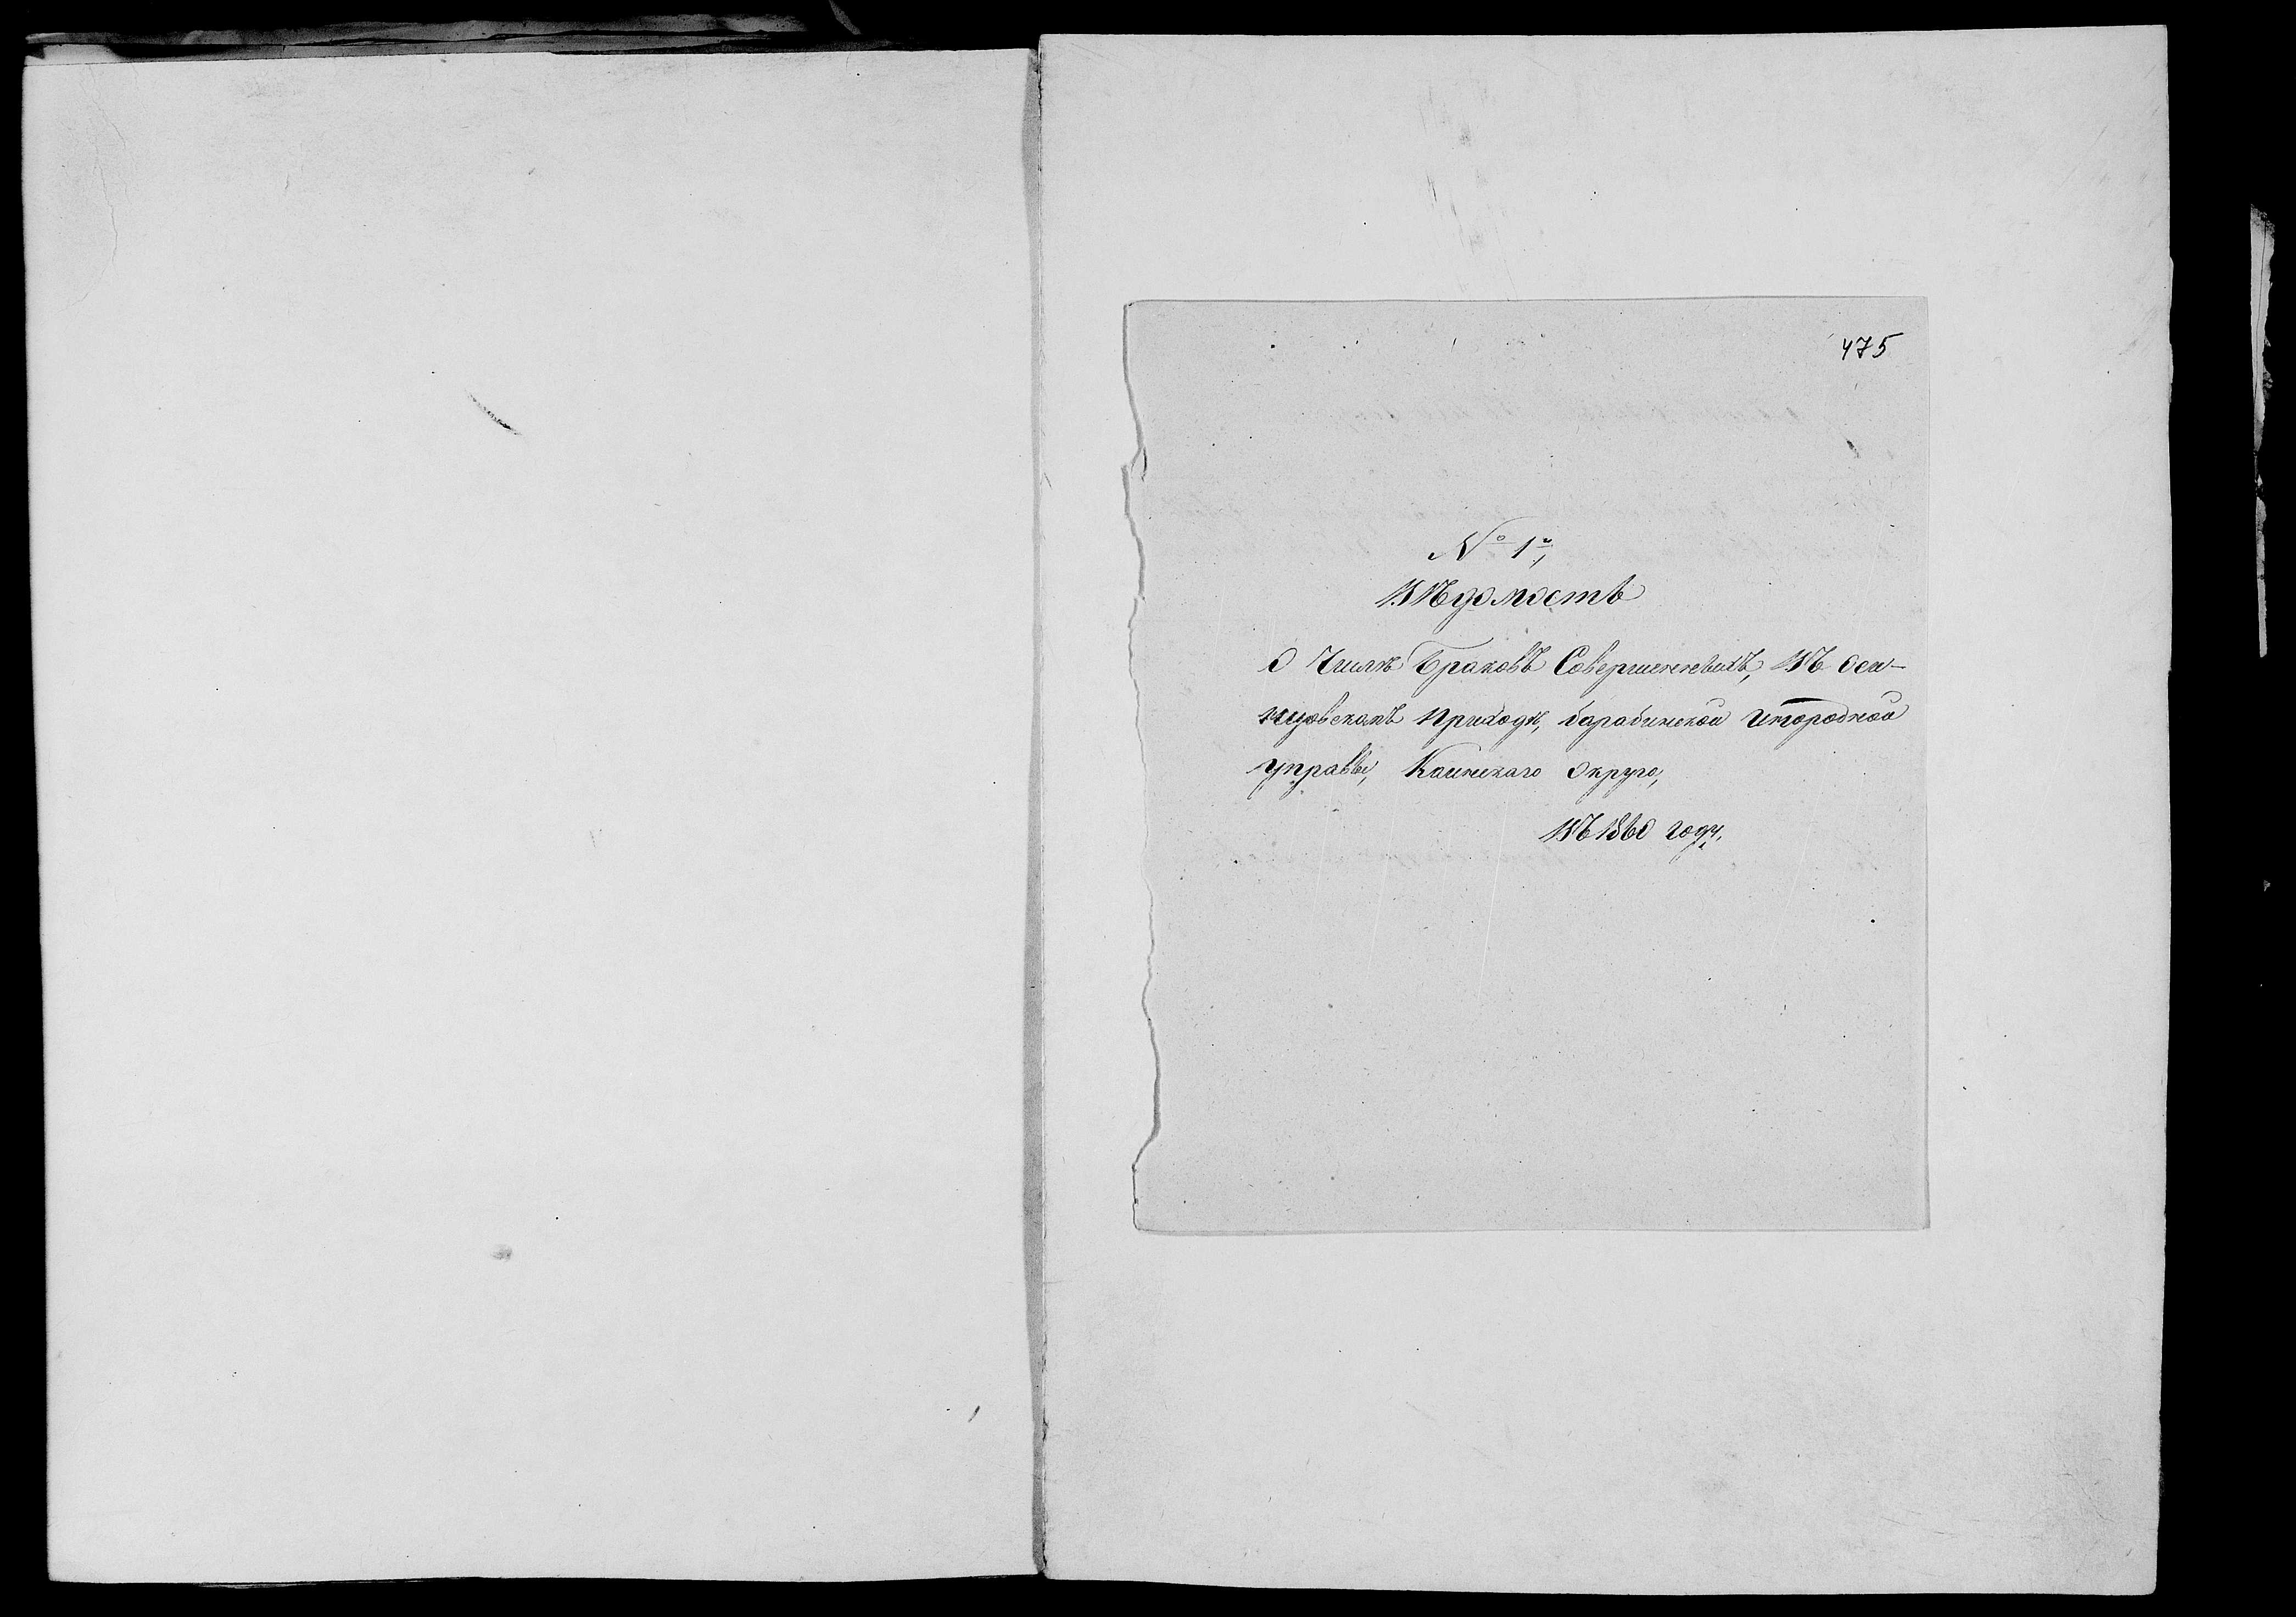 475
№ 1й,
Вѣдомость
О Числѣ Браковъ Совершенныхъ, Въ Оси-
нцовскомъ Приходѣ, барабинской Инородной
управы, Каинскаго Округа,
Въ 1860 году,